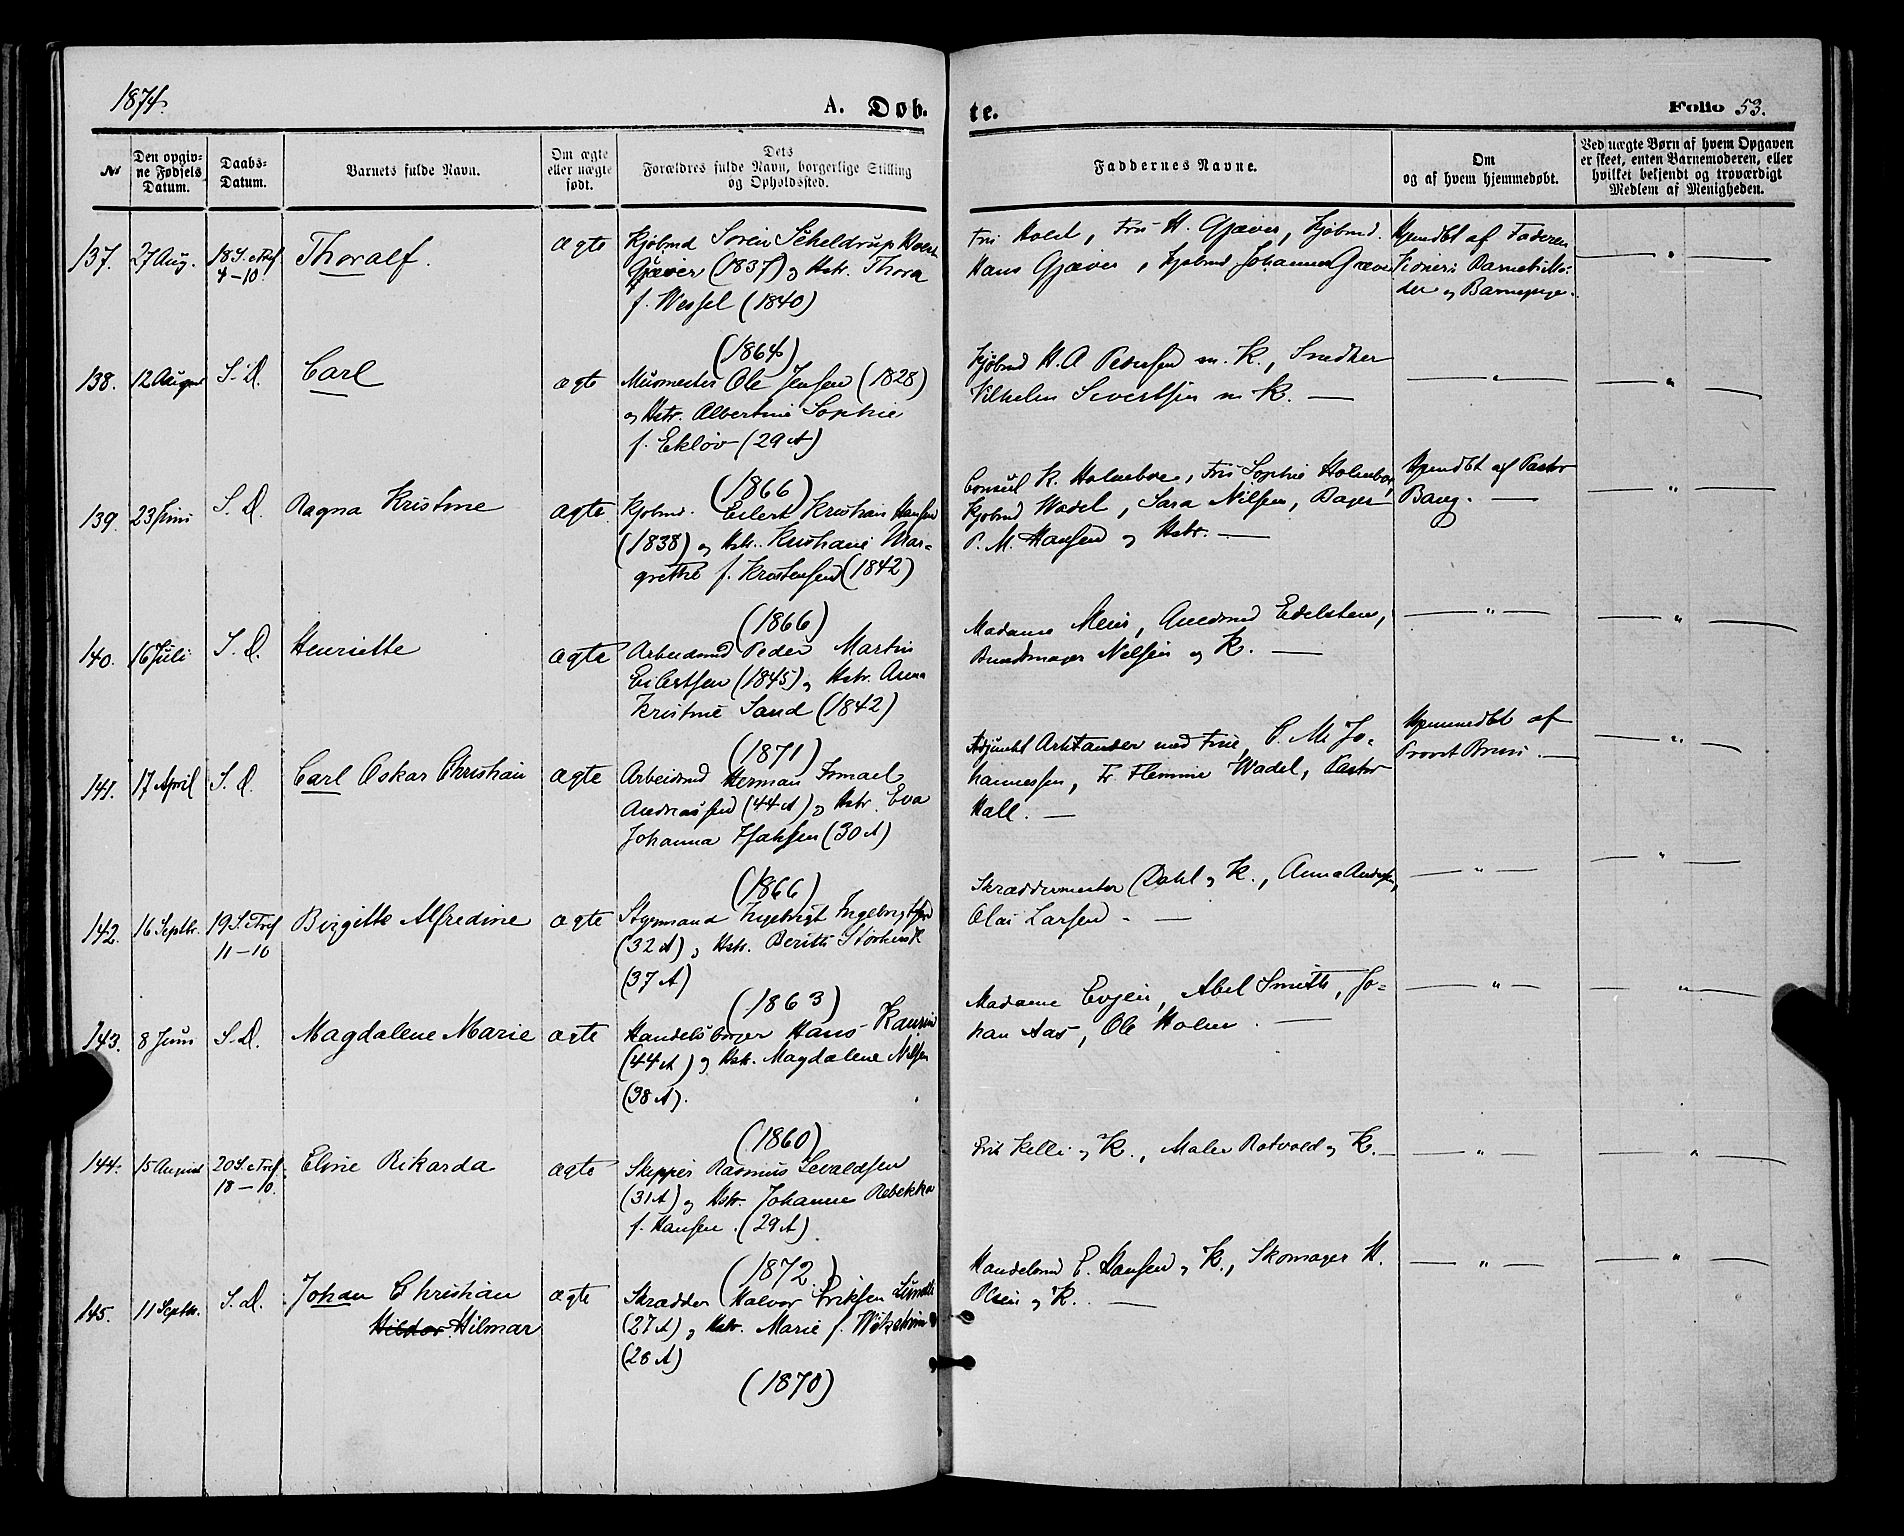 1874.
A. Døb-
te.
Folio 53.
№
Den opgiv-
ne Fødsels
Datum.
Daabs-
Datum.
Barnets fulde Navn.
Om ægte
eller uægte
født.
Dets
Forældres fulde Navn, borgerlige Stilling
og Opholdssted.
Faddernes Navne.
Om
og af hvem hjemmedøbt.
Ved uægte Børn af hvem Opgaven
er skeet, enten Barnemoderen, eller
hvilket bekjendt og troværdigt
Medlem af Menigheden.
137. 27 Aug. 18 S. e Tref
4-10.
Thoralf.
ægte
Kjøbmd Søren Scheldrup Holst
Gjæver (1837) og Hstr. Thora
f. Wessel (1840)
(1864)
Fru Holst, Frk H. Gjæver, Kjøbmd.
Hans Gjæver, Kjøbmd Johannes Gjæver
Hjemdbt af Faderen
Vidner: Barnets Mo-
der og Barnepige.
138. 12 August S. D.
Carl
ægte
Murmester Ole Jensen (1828)
og Hstr. Albertine Sophie
f. Ekløv (29 A)
(1866)
Kjøbmd H. A Petersen m. K., Snedker
Vilhelm Sivertsen m K. —
139. 23 Juni S. D.
Ragna Kristine
ægte.
Kjøbmd. Eilert Kristian Hansen
(1838) og Hstr. Kristiane Mar-
grethe f. Kristensen (1842)
(1866)
Consul K. Holmboe, Frk Sophie Holmboe,
Kjøbmd Wadel, Sara Nilsen, Bager
P. M. Hansen og Hstr. —
Hjemdbt af Pastor
Bang. —
140. 16 Juli S. D.
Henriette
ægte
Arbeidsmd Peder Martin
Eilertsen (1845) og Hstr. Anna
Kristine Sand (1842)
(1871)
Madame Meier, Edelsteen,
Bundtmager Nilsen og K. —
141. 17 April S. D.
Carl Oskar Christian
ægte
Arbeidsmd Herman Ismael
Andreassen (44 A) og Hstr. Eva
Johanna Isaksen (30 A)
(1866)
Adjunkt Arktander med Frue, P. M. Jo-
hannessen, Fr. Flemine Wadel, Pastor
Hall. —
Hjemmedbt af
Provst Bruun. —
142. 16 Septbr. 19 S. e Tref
11-10
Birgitte Alfredine
ægte
Styrmand Ingebrigt Ingebrigtsen
(32 A) og Hstr. Berith
(37 A)
(1863)
Skræddermester Dahl og K., Anna Andersen,
Olai Larsen. —
143. 8 Juni S. D.
Magdalene Marie
ægte
Handelsborger Hans Kaurin
(44 A) og Hstr. Magdalene Nilsen
(38 A).
(1860)
Madame Evjen, Abel Smith, Jo-
han Aas, Ole Holm. —
144. 15 August 20 S. e Tref.
18-10.
Eline Rikarda
ægte
Skipper Rasmus Sevaldsen
(31 A) og Hstr. Johanne Rebekka
f. Hansen. (29 A).
(1872.)
Erik Kelli og K., Maler Rotvold og K. —
145. 11 Septbr. S. D.
Johan Christian
Hildor. Hilmar
ægte
Skrædder Halvor Eriksen Lunde
(27 A) og Hstr. Marie f.
(28 A)
(1870)
Handelsmd E. Hansen og K., Skomager H.
Olsen og K. —